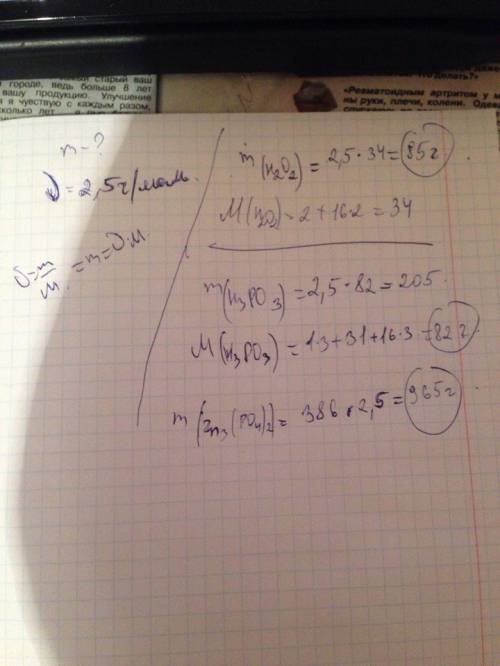 старый ваш
городе, ведь больше 8 лет
вашу продукцию. Улучшение
я чувствую с каждым разом,
«Ревматоидным артритом у м
ны руки, плечи, колени. Одев
m - ?
ν = 2,5 г/моль.
ν = m/M = m = ν·M
m(H₂O₂) = 2,5·34 = 85 г.
M(H₂O₂) = 2 + 16·2 = 34
m(H₃PO₃) = 2,5·82 = 205.
M(H₃PO₃) = 1·3 + 31 + 16·3 = 82 г.
m[Zn₃(PO₄)₂] = 386·2,5 = 965 г